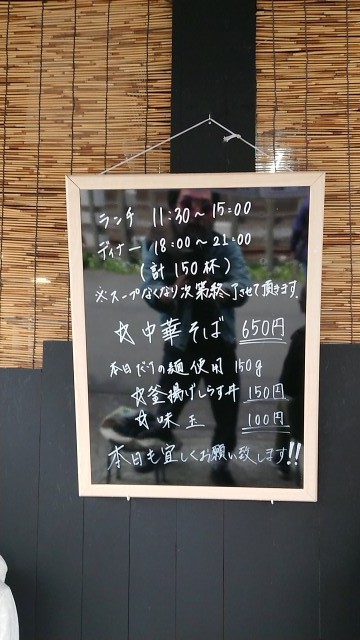 ランチ 11:30～15:00
ディナー 18:00～21:00
(計150杯)
※スープなくなり次第終了させて頂きます.
☆中華そば 650円
本日 の麺使用 150g
☆釜揚げしらす丼 150円
☆味玉 100円
本日も宜しくお願い致します!!